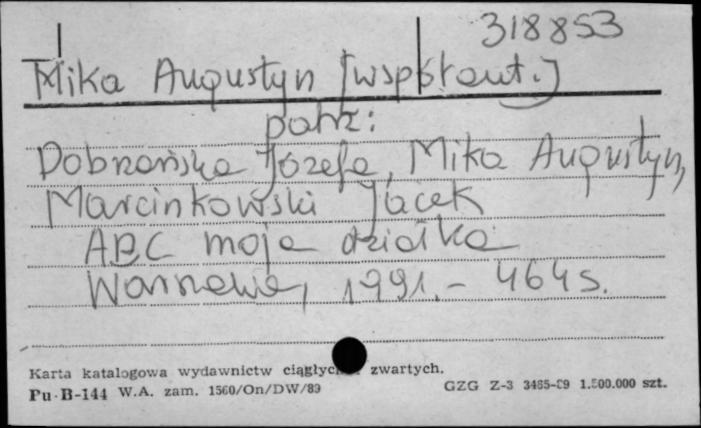 318853
Mika Augustyn [współaut.]
patrz:
Dobrzańska Józefa, Mika Augustyn,
Marcinkowski Jacek
ABC moja działka
Warszawa, 1991. - 464 s.
Karta katalogowa wydawnictw ciągłyc zwartych.
Pu-B-144 W.A. zam. 1560/On/DW/89 GZG Z-3 3485-89 1.500.000 szt.